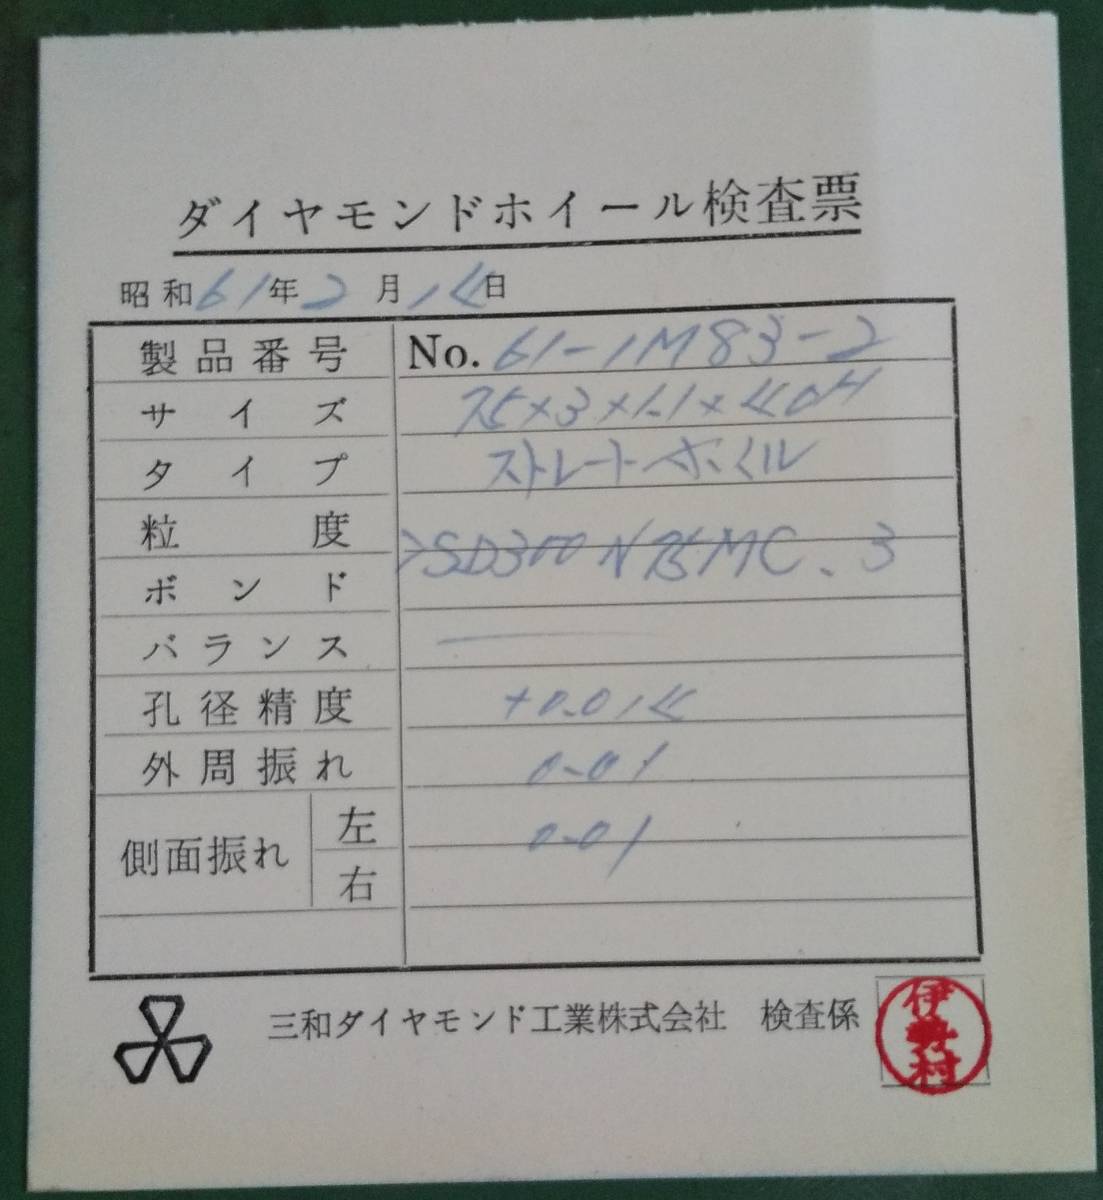 ダイヤモンドホイール検査票
昭和61年2月14日
製品番号 No. 61-1M83-2
サイズ 75×3×1.1×40H
タイプ ストレートホイル
粒度 SD300N75MC.3
ボンド
バランス —
孔径精度 +0.014
外周振れ 0.01
側面振れ 左 0.01
右
三和ダイヤモンド工業株式会社 検査係